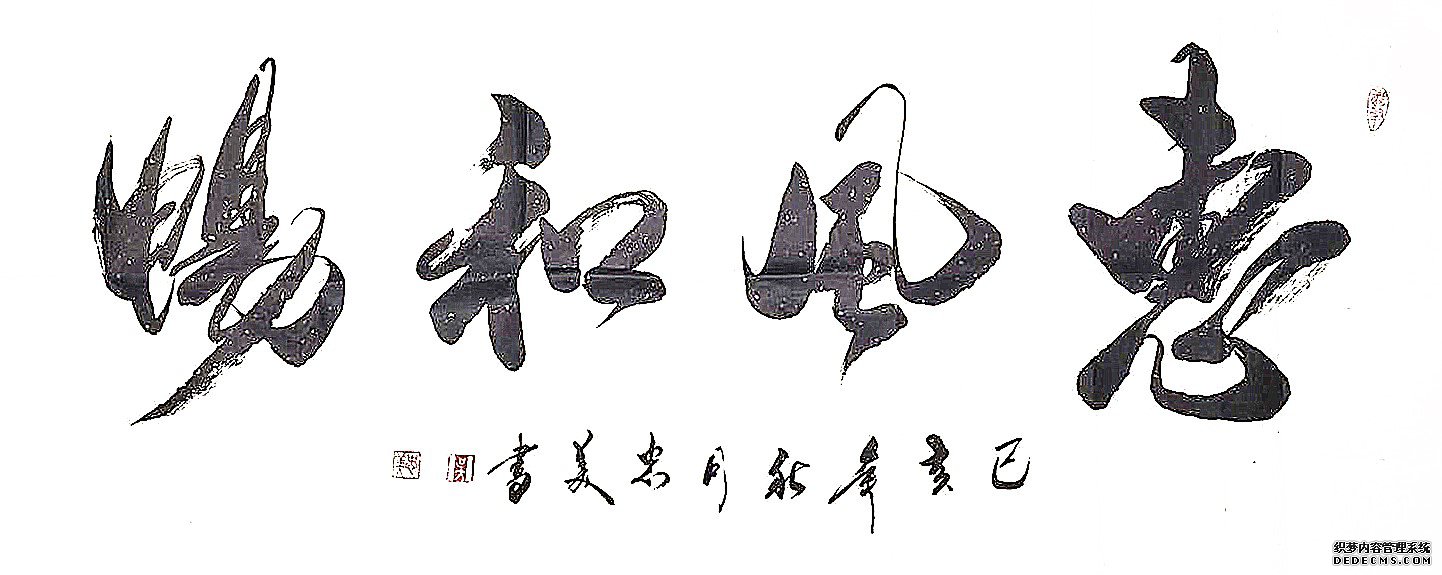 惠风和畅
己亥年秋月忠美书
织梦内容管理系统
DEDECMS.COM